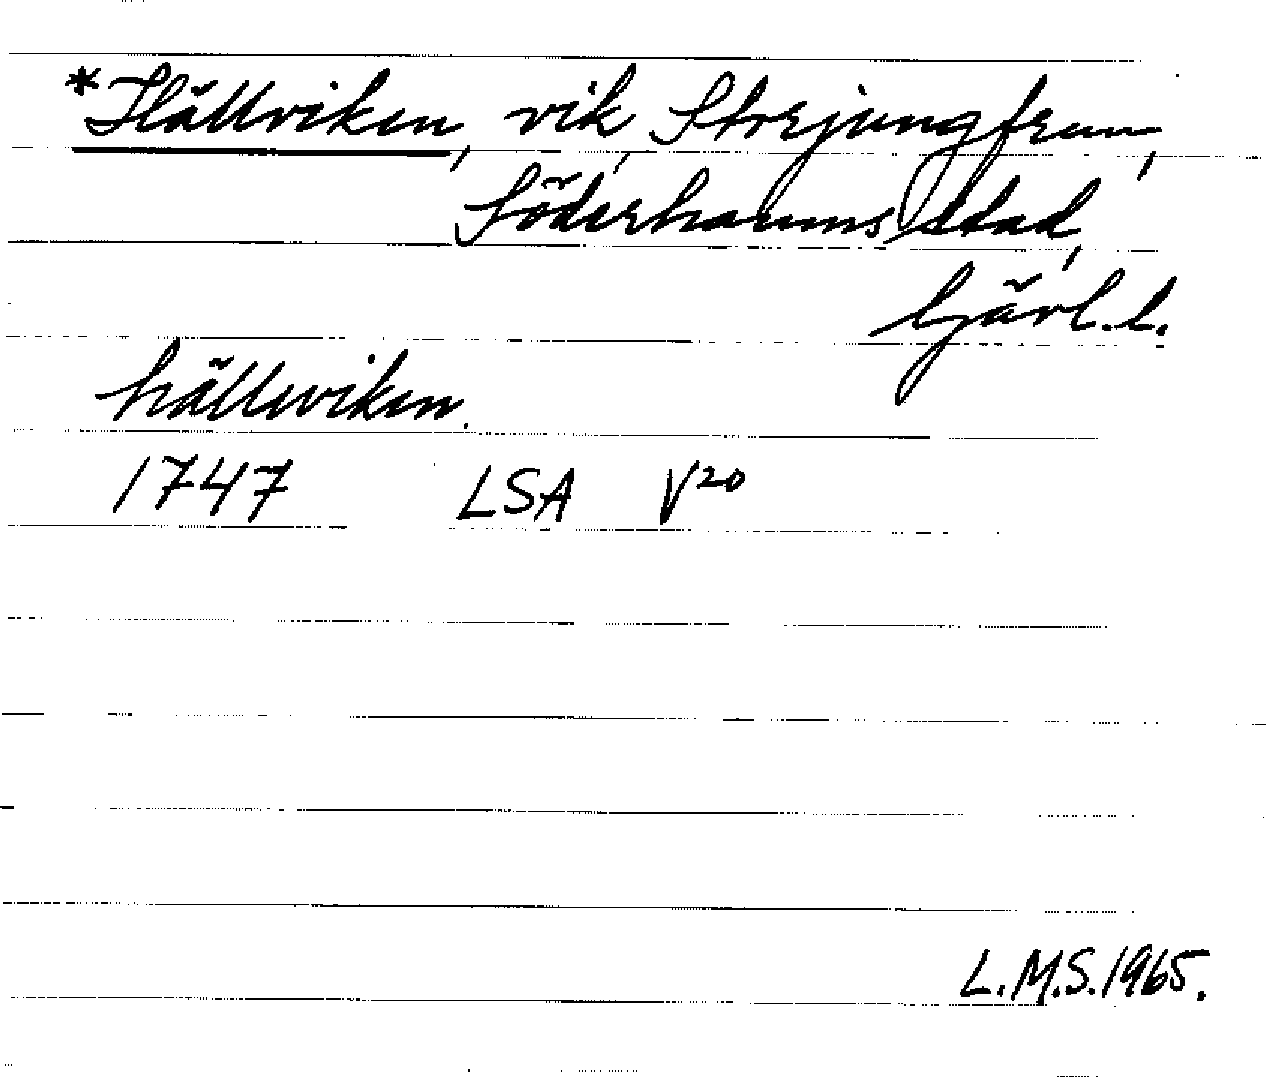 *Hällviken, vik, Storjungfrun,
Söderhamns stad,
Gävl.l.
hällewiken.
1747 LSA V²⁰
L.M.S.1965.